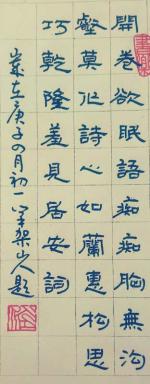 開卷欲眠語痴痴胸無溝
壑莫作詩心如蘭蕙松思
巧乾隆羞見居安詞
歲在庚子四月初一笔架山人題